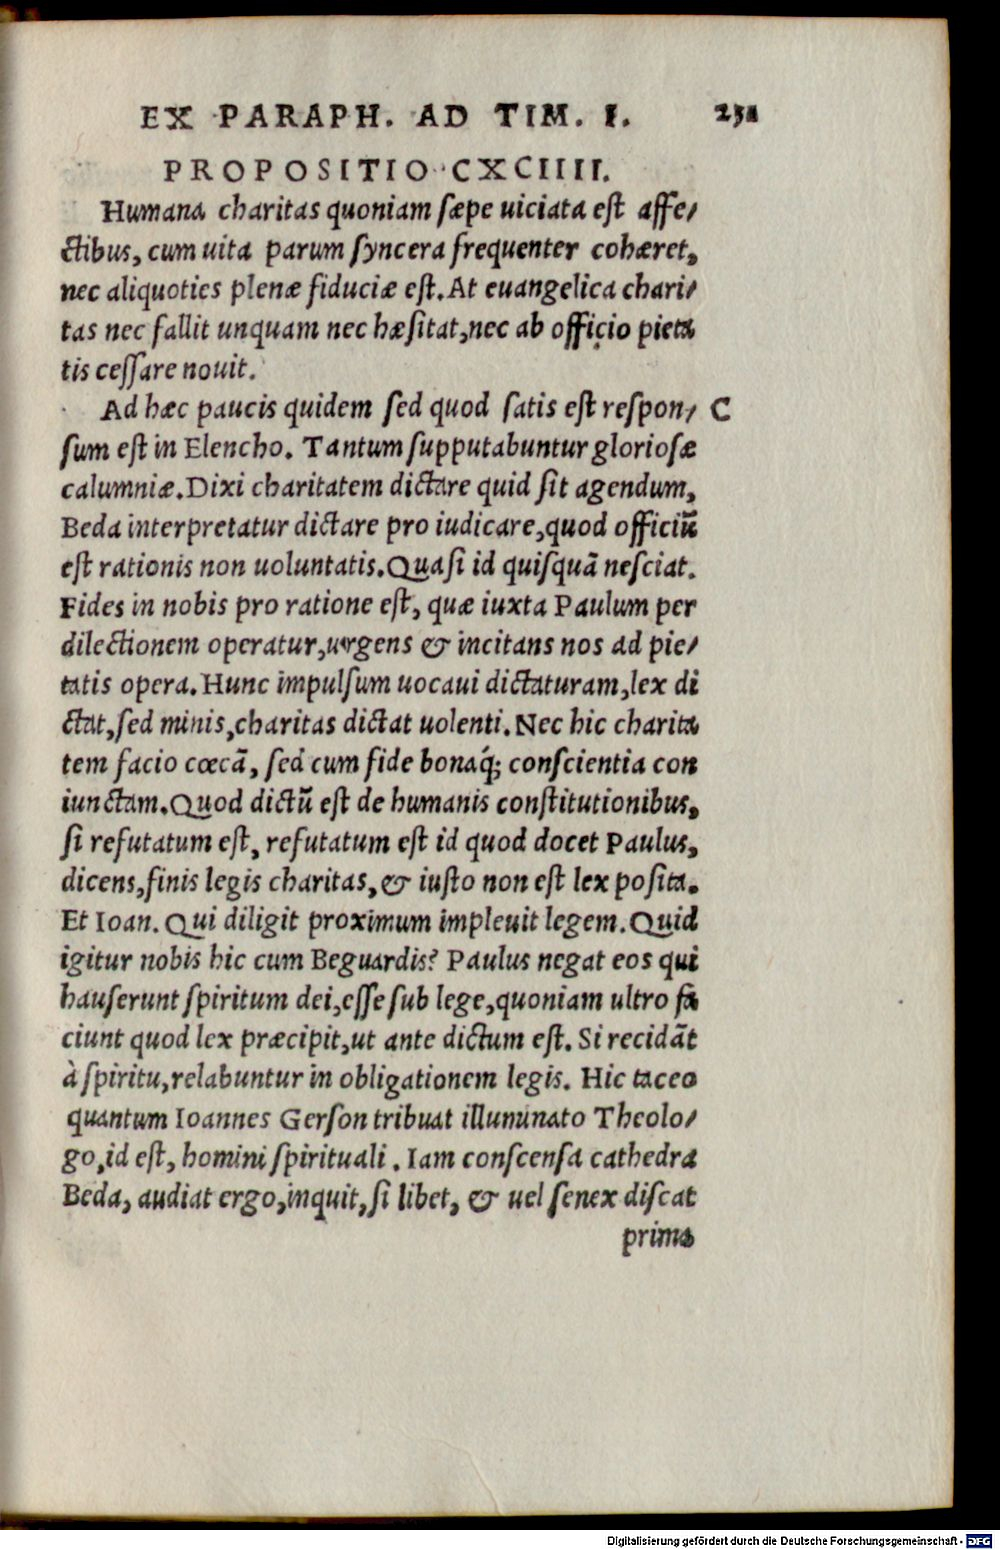 EX PARAPH. AD TIM. I. 231
PROPOSITIO CXCIIII.
Humana charitas quoniam sæpe uiciata est affe/
ctibus, cum uita parum syncera frequenter cohæret,
nec aliquoties plenæ fiduciæ est. At euangelica chari/
tas nec fallit unquam nec hæsitat, nec ab officio pieta
tis cessare nouit.
Ad hæc paucis quidem sed quod satis est respon/ C
sum est in Elencho. Tantum supputabuntur gloriosæ
calumniæ. Dixi charitatem dictare quid sit agendum,
Beda interpretatur dictare pro iudicare, quod officiũ
est rationis non uoluntatis. Quasi id quisquã nesciat.
Fides in nobis pro ratione est, quæ iuxta Paulum per
dilectionem operatur, urgens & incitans nos ad pie/
tatis opera. Hunc impulsum uocaui dictaturam, lex di
ctat, sed minis, charitas dictat uolenti. Nec hic charita
tem facio cœcã, sed cum fide bonaq́; conscientia con
iunctam. Quod dictũ est de humanis constitutionibus,
si refutatum est, refutatum est id quod docet Paulus,
dicens, finis legis charitas, & iusto non est lex posita.
Et Ioan. Qui diligit proximum impleuit legem. Quid
igitur nobis hic cum Beguardis? Paulus negat eos qui
hauserunt spiritum dei, esse sub lege, quoniam ultro fa
ciunt quod lex præcipit, ut ante dictum est. Si recidãt
à spiritu, relabuntur in obligationem legis. Hic taceo
quantum Ioannes Gerson tribuat illuminato Theolo/
go, id est, homini spirituali. Iam conscensa cathedra
Beda, audiat ergo, inquit, si libet, & uel senex discat
prima
Digitalisierung gefördert durch die Deutsche Forschungsgemeinschaft - DFG